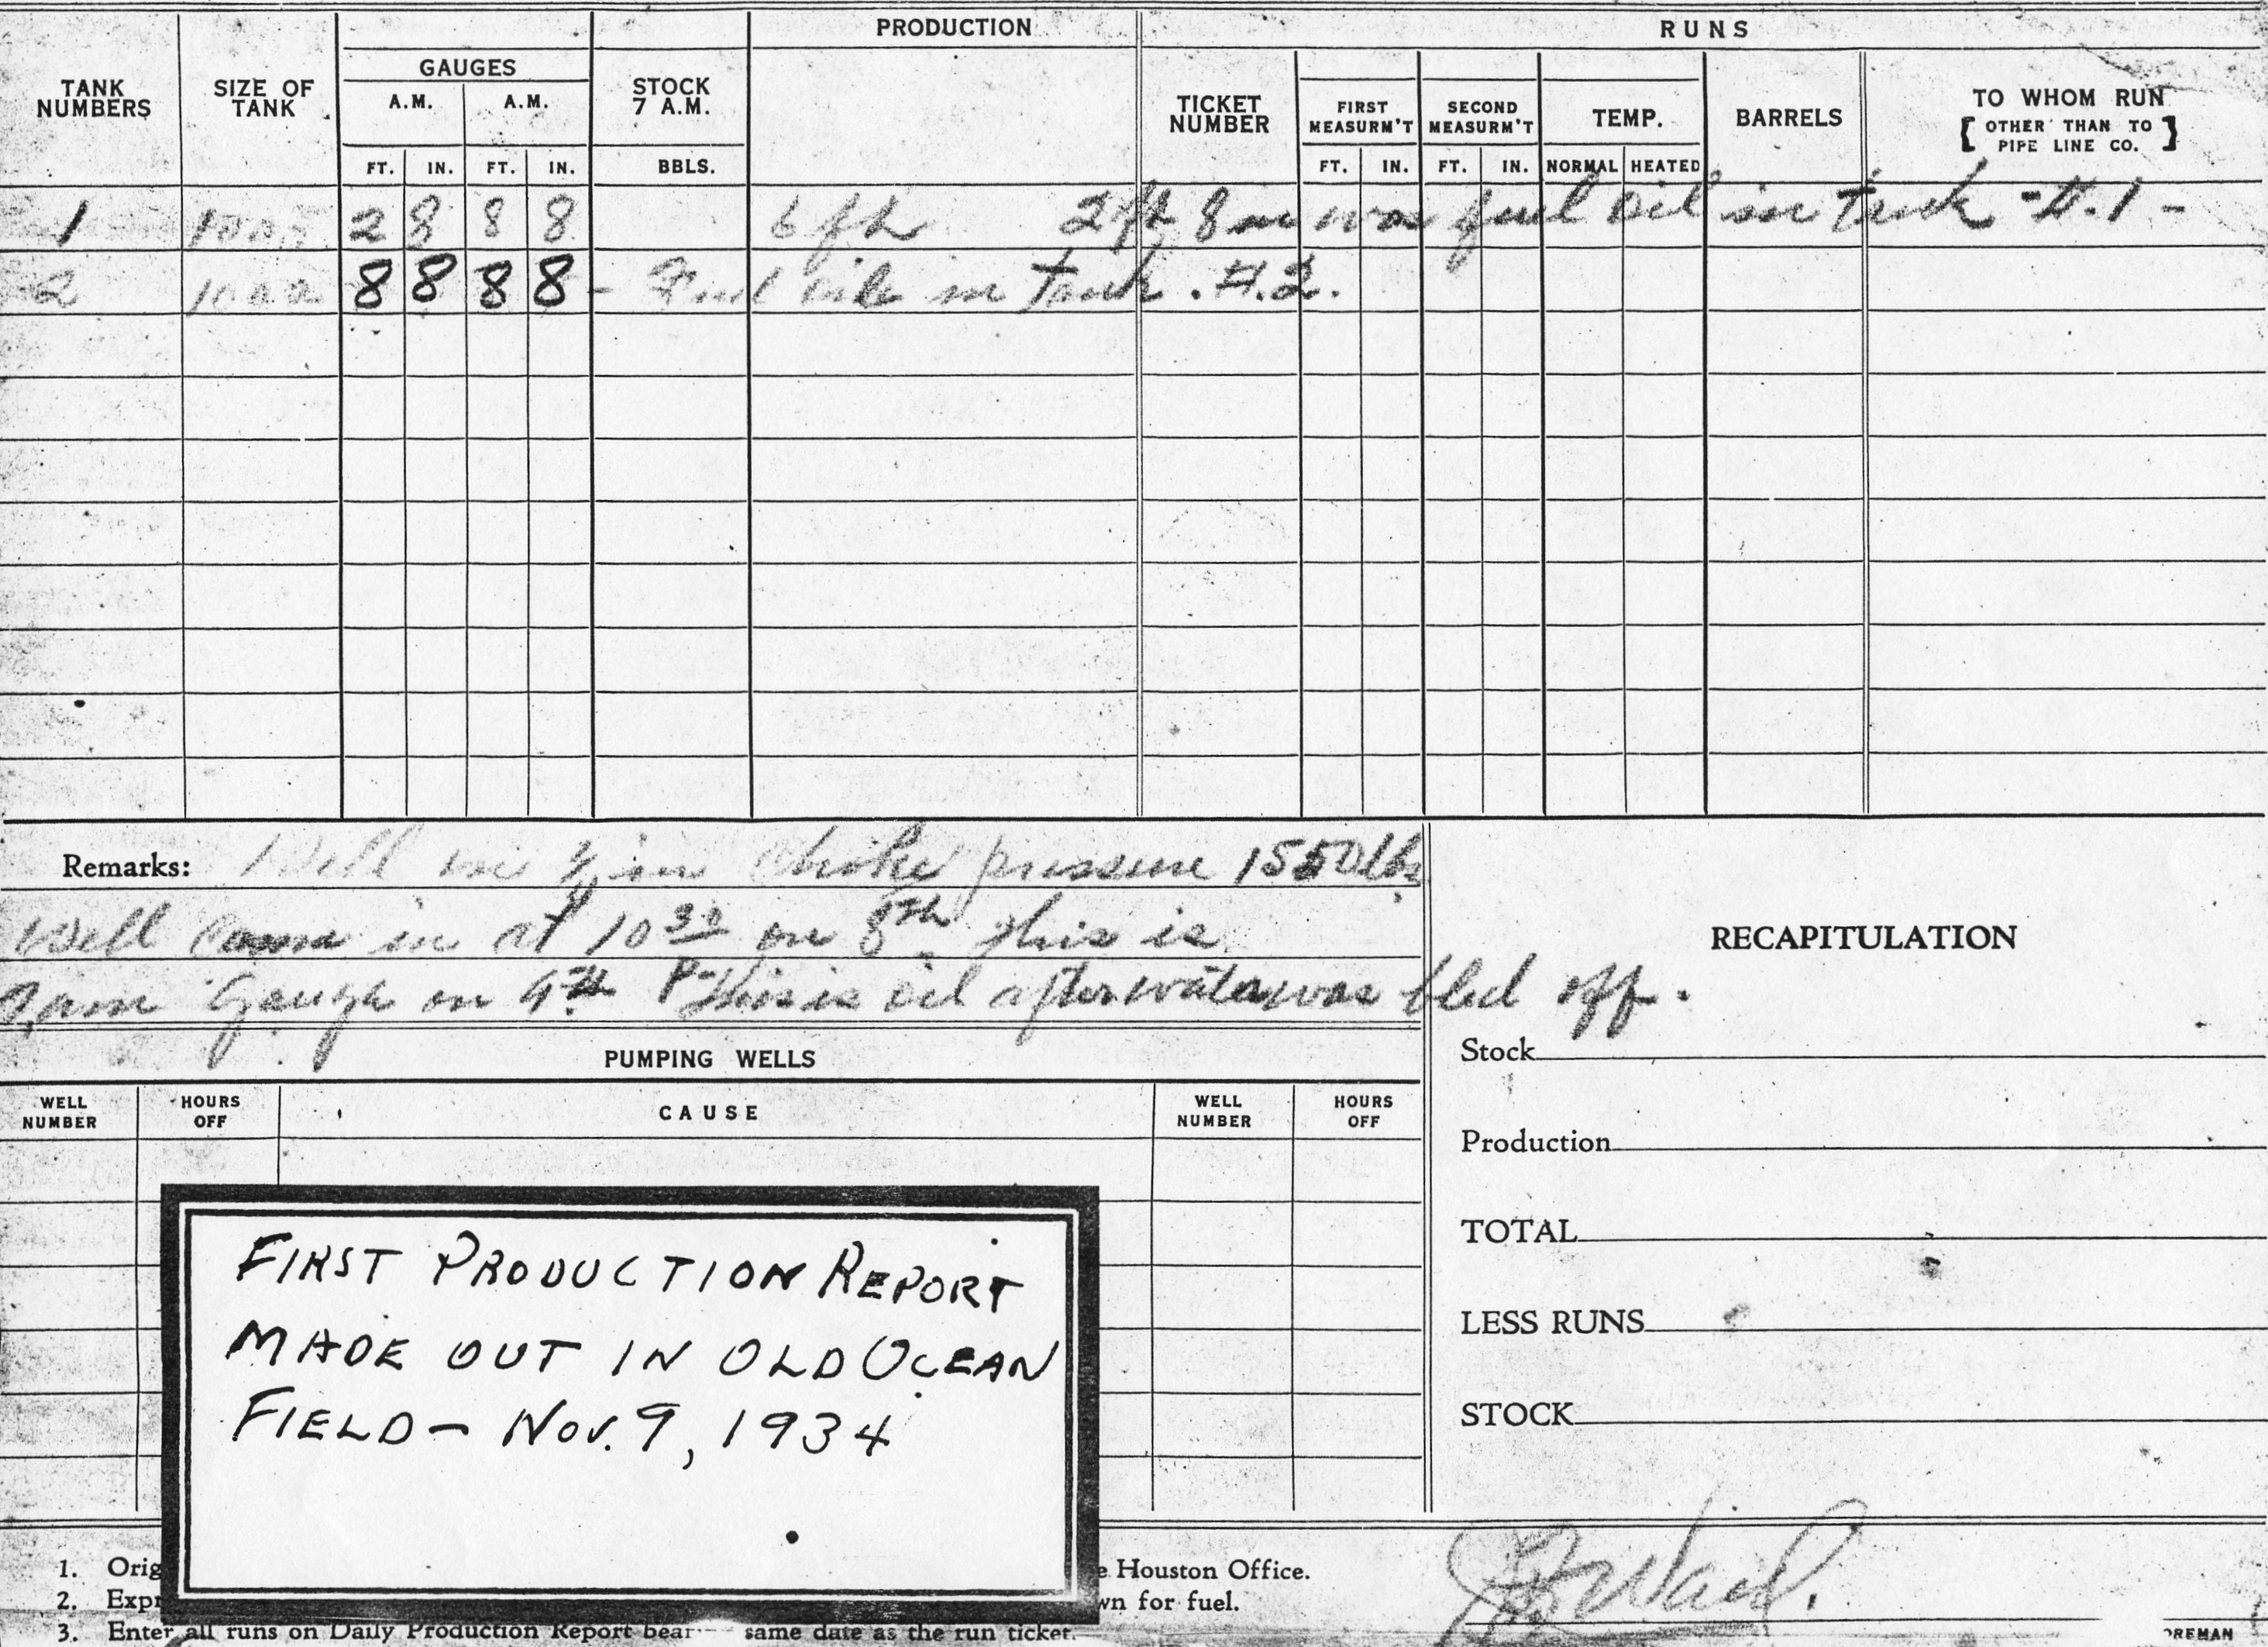 PRODUCTION
RUNS
TANK NUMBERS
SIZE OF TANK
GAUGES
A.M. A.M.
FT. IN. FT. IN.
STOCK 7 A.M.
BBLS.
TICKET NUMBER
FIRST MEASURM'T
FT. IN.
SECOND MEASURM'T
FT. IN.
TEMP.
NORMAL HEATED
BARRELS
TO WHOM RUN
[ OTHER THAN TO PIPE LINE CO. ]
1 1000 2 8 8 8 6 ft 2 ft 8 in was fuel oil in tank #.1 -
2 1000 8 8 8 8 - Fuel oil in tank . #.2.
Remarks: Well on in choke pressure 1550 lbs
Well came in at 10 30 on 8th this is
7 am Gauge on 9th This is oil after water was bled off.
RECAPITULATION
Stock
Production
TOTAL
LESS RUNS
STOCK
PUMPING WELLS
WELL NUMBER
HOURS OFF
CAUSE
WELL NUMBER
HOURS OFF
FIRST PRODUCTION REPORT
MADE OUT IN OLD OCEAN
FIELD - NOV. 9, 1934
1. Orig e Houston Office.
2. Expr wn for fuel.
3. Enter all runs on Daily Production Report bear same date as the run ticket.
OREMAN